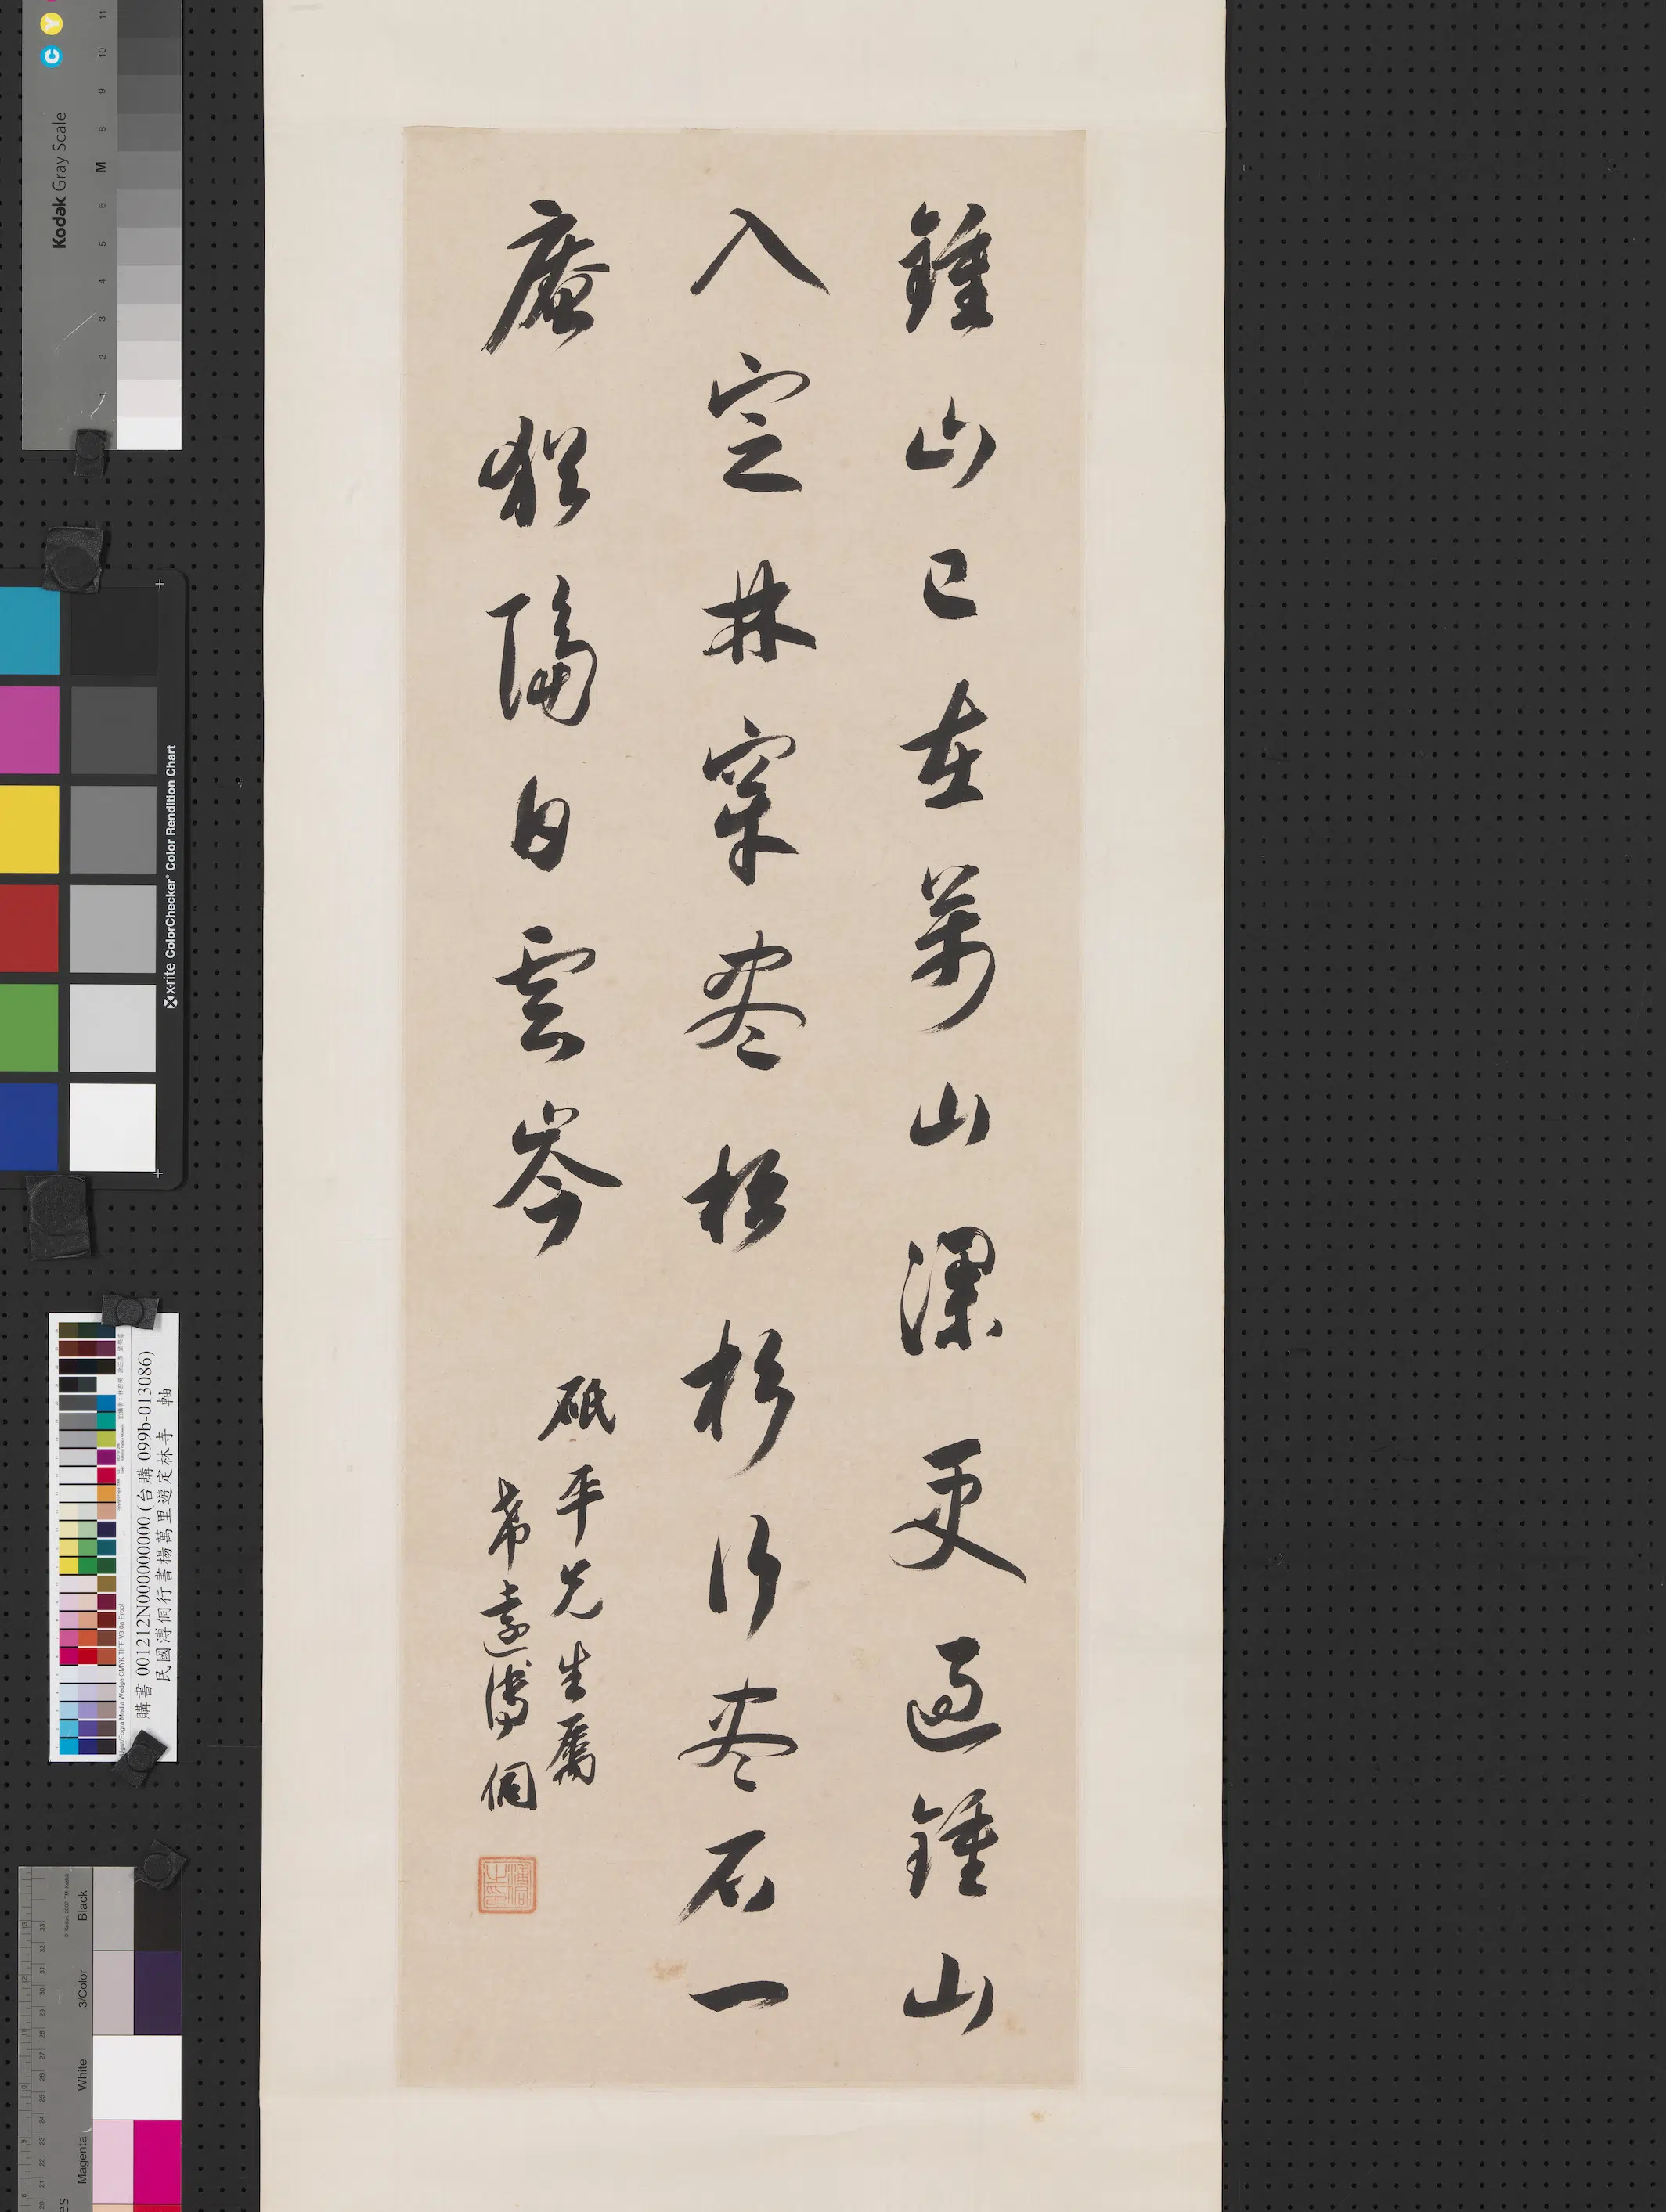 鍾山已在萬山深更過鍾山
入定林穿盡松杉行盡石一
庵猶隔白雲岑
砥平先生屬
希遠溥侗
Kodak Gray Scale
C Y M
x-rite ColorChecker Color Rendition Chart
購書 001212N000000000 (台購 099b-013086)
民國溥侗行書楊萬里遊定林寺 軸
Black
3/Color
White
Magenta